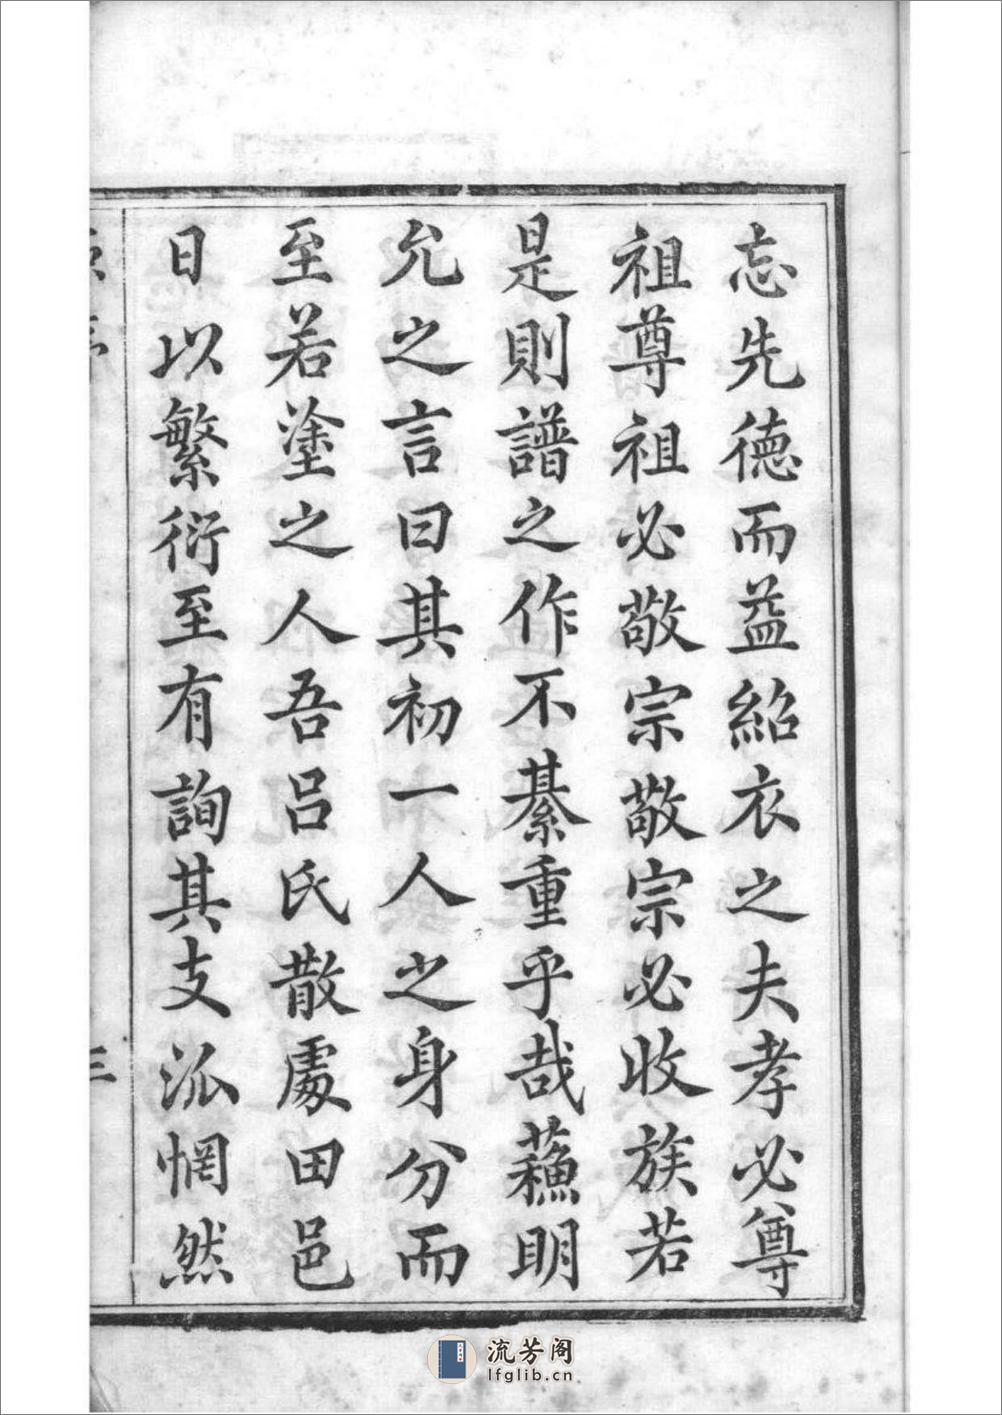 忘先德而益紹衣之夫孝必尊
祖尊祖必敬宗敬宗必收族若
是則譜之作不綦重乎哉蘓明
允之言曰其初一人之身分而
至若塗之人吾吕氏散處田邑
日以繁衍至有詢其支派惘然
三
流芳阁
lfglib.cn